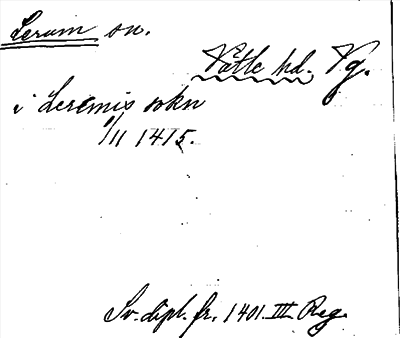 Lerum sn.
Vättle hd. Vg.
i Leremis sokn
9/11 1415.
Sv. dipl. fr. 1401 III Reg.